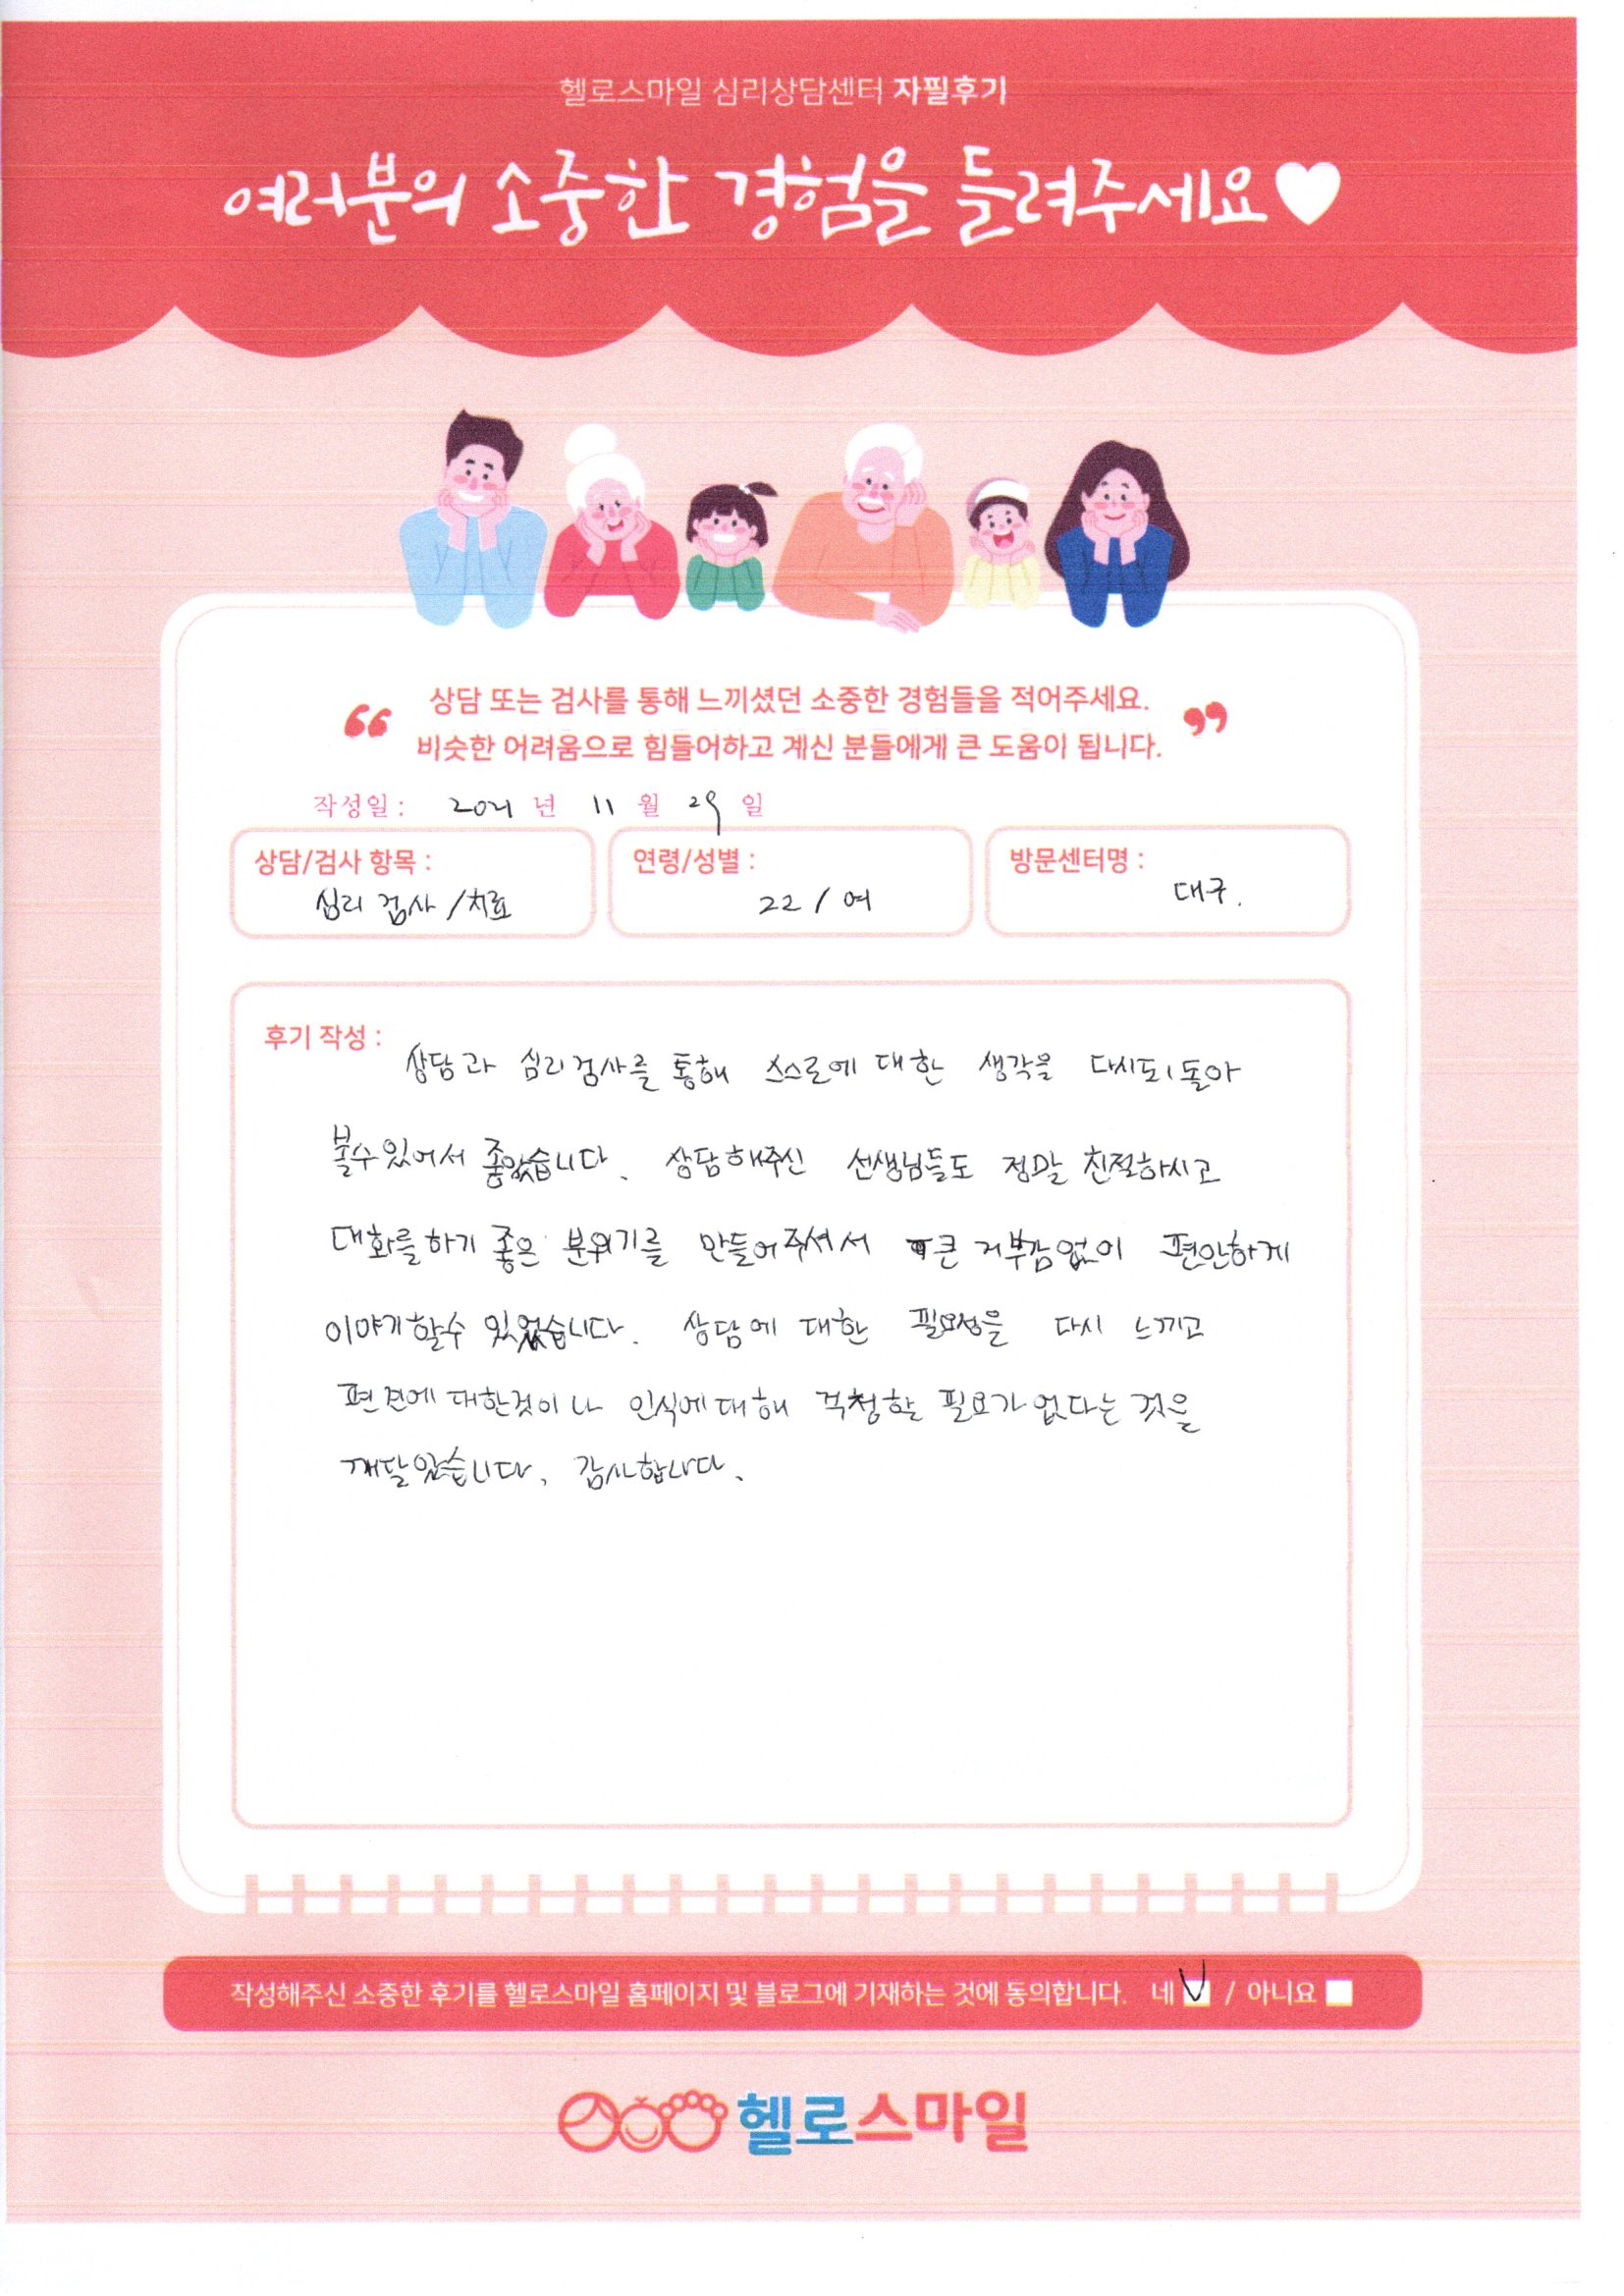 헬로스마일 심리상담센터 자필후기
여러분의 소중한 경험을 들려주세요
상담 또는 검사를 통해 느끼셨던 소중한 경험들을 적어주세요.
비슷한 어려움으로 힘들어하고 계신 분들에게 큰 도움이 됩니다.
작성일 : 2021 년 11 월 29 일
상담/검사 항목 : 연령/성별 : 방문센터명 :
심리 검사 / 치료 22 / 여 대구.
후기 작성 : 상담과 심리검사를 통해 스스로에 대한 생각을 다시되돌아
볼수있어서 좋았습니다. 상담해주신 선생님들도 정말 친절하시고
대화를하기 좋은 분위기를 만들어주셔서 큰 거부감없이 편안하게
이야기할수 있었습니다. 상담에 대한 필요성을 다시 느끼고
편견에 대한것이나 인식에대해 걱정할 필요가 없다는 것을
깨달았습니다. 감사합니다.
작성해주신 소중한 후기를 헬로스마일 홈페이지 및 블로그에 기재하는 것에 동의합니다. 네 / 아니요
헬로스마일